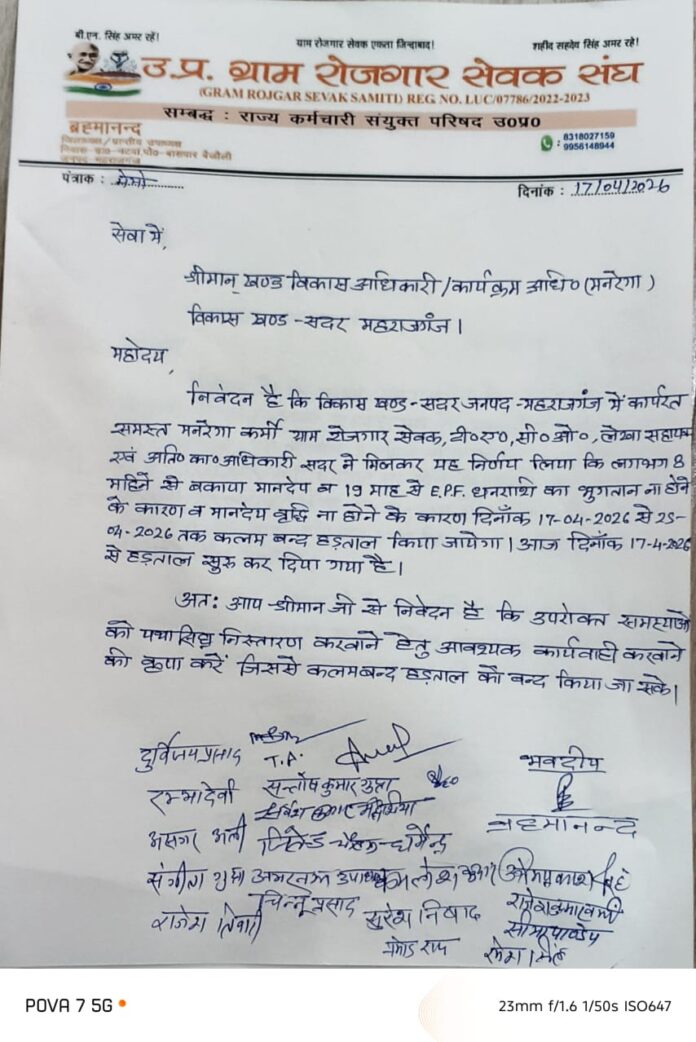 बी.एन. सिंह अमर रहें!
ग्राम रोजगार सेवक एकता जिन्दाबाद!
शहीद सहदेव सिंह अमर रहे!
उ.प्र. ग्राम रोजगार सेवक संघ
(GRAM ROJGAR SEVAK SAMITI) REG NO. LUC/07786/2022-2023
सम्बद्ध : राज्य कर्मचारी संयुक्त परिषद उ०प्र०
ब्रह्मानन्द
जिलाध्यक्ष/प्रान्तीय उपाध्यक्ष
जनपद महराजगंज
8318027159
9956148944
पंत्राक : मेमो
दिनांक : 17/04/2026
सेवा में,
श्रीमान् खण्ड विकास अधिकारी/कार्यक्रम अधि० (मनरेगा)
विकास खण्ड - सदर महराजगंज।
महोदय,
निवेदन है कि विकास खण्ड - सदर जनपद - महराजगंज में कार्यरत
समस्त मनरेगा कर्मी ग्राम रोजगार सेवक, टी०ए०, सी०ओ०, लेखा सहायक
एवं अति० का० अधिकारी सदर ने मिलकर यह निर्णय लिया कि लगभग 8
महिने से बकाया मानदेय व 19 माह से E.P.F. धनराशि का भुगतान ना होने
के कारण व मानदेय वृद्धि ना होने के कारण दिनाँक 17-04-2026 से 25-
04-2026 तक कलम बन्द हड़ताल किया जायेगा। आज दिनाँक 17-4-2026
से हड़ताल सुरु कर दिया गया है।
अतः आप श्रीमान जी से निवेदन है कि उपरोक्त समस्याओ
को यथासिघ्र निस्तारण करवाने हेतु आवश्यक कार्यवाही करवाने
की कृपा करें जिससे कलमबन्द हड़ताल को बन्द किया जा सके।
दुर्विजय प्रसाद T.A.
भवदीय
रम्भादेवी सन्तोष कुमार गुप्ता
ब्रह्मानन्द
असगर अली धर्मेन्द्र
संगीता गुप्ता अमरनाथ उपाध्याय कमलेश कुमार ओमप्रकाश सिंह
राजेश तिवारी चिन्नू प्रसाद सुरेश निषाद
प्रमोद राय
POVA 7 5G
23mm f/1.6 1/50s ISO647